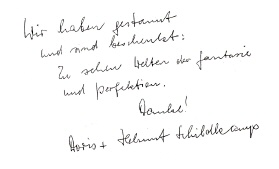 Wir haben gestaunt
und sind beschenkt:
Zu sehen Welten der Fantasie
und Perfektion.
Danke!
Doris + Helmut Schildkamp